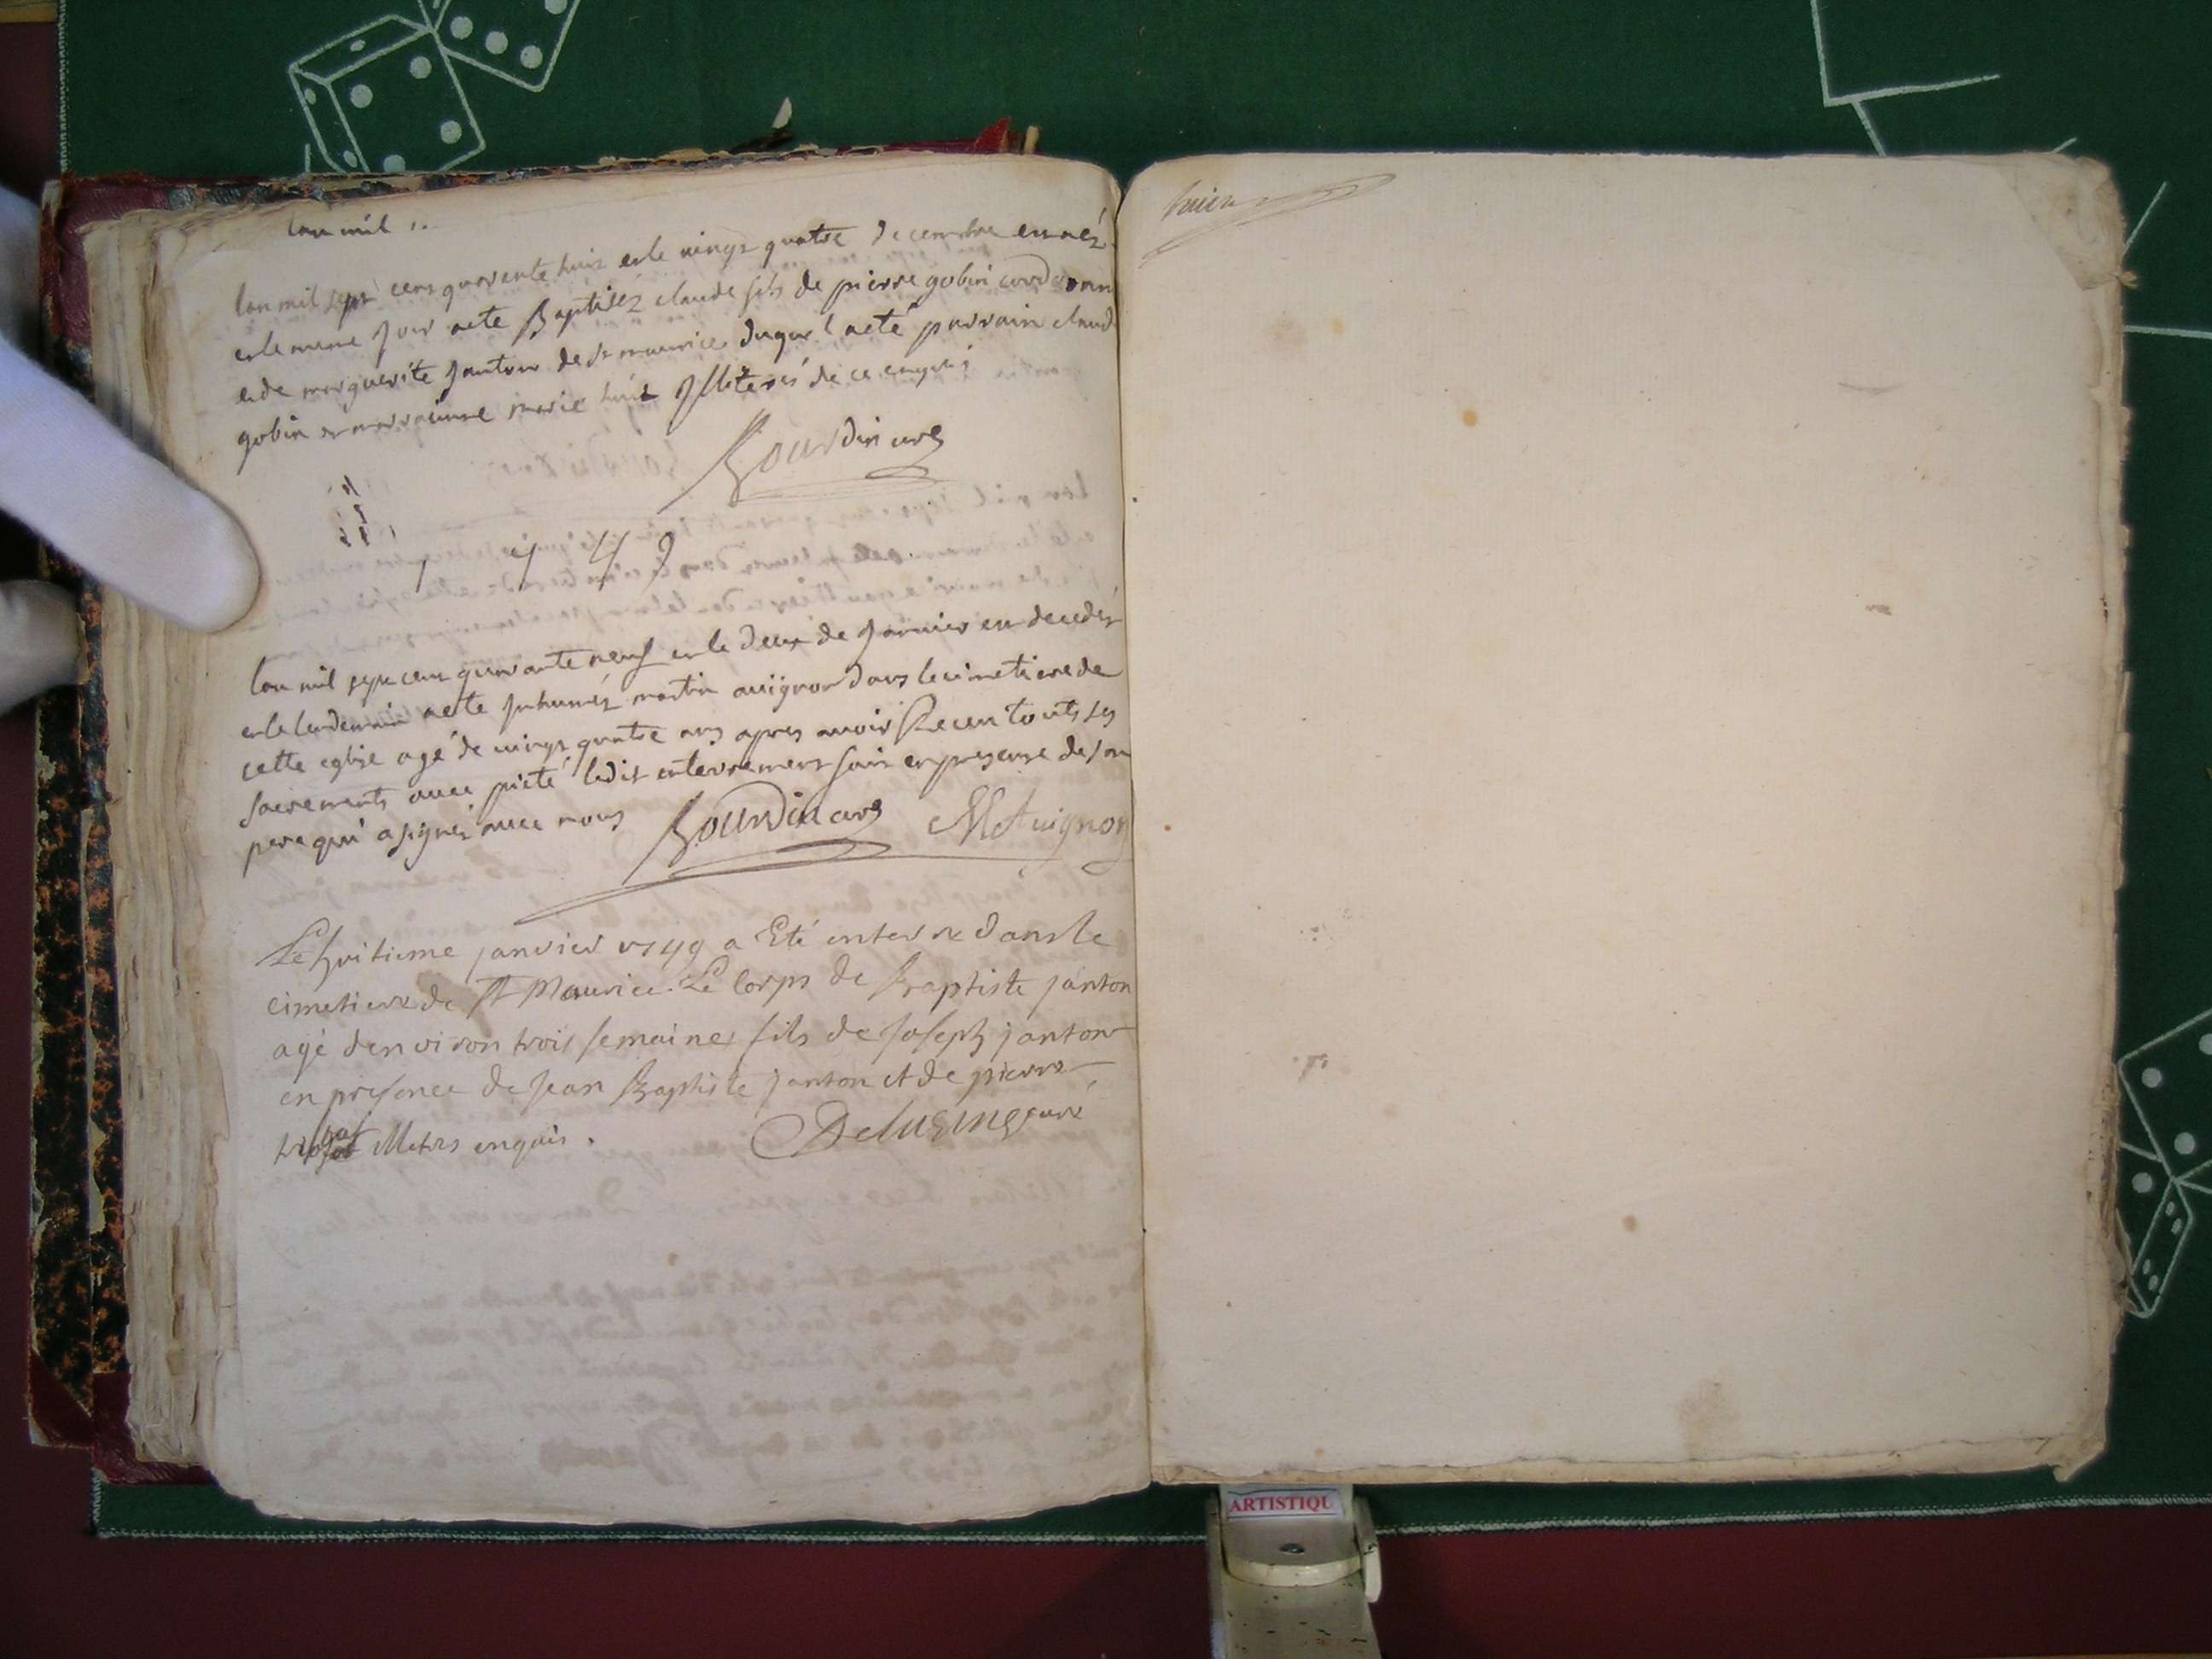 lan mil
lan mil sept cens quarente huit et le vingt quatre decembre est nez
et le meme jour a ete Baptisez claude fils de pierre gobin cordonni
et de marguerite janton de st maurice duquel a eté parrain claud
gobin et marrainne marie huit illiterés de ce enquis
Bourdin curé
1 7 4 9
lan mil sept cens quarante neuf et le deux de janvier est decedé
et le lendemain a ete inhumés martin avignon dans le cimetiere de
cette eglise agé de vingt quatre ans apres avoir Receu touts ses
sacrements avec pieté ledit enterrement fait en presence de son
pere qui a signé avec nous Bourdin curé M Avignon
Le huitieme janvier 1749 a Eté enterre dans le
cimetiere de St Maurice Le Corps de Baptiste janton
agé d'environ trois semaines fils de Joseph janton
en presence de Jean Baptiste janton et de pierre
illetrés enquis . curé
ARTISTIQU